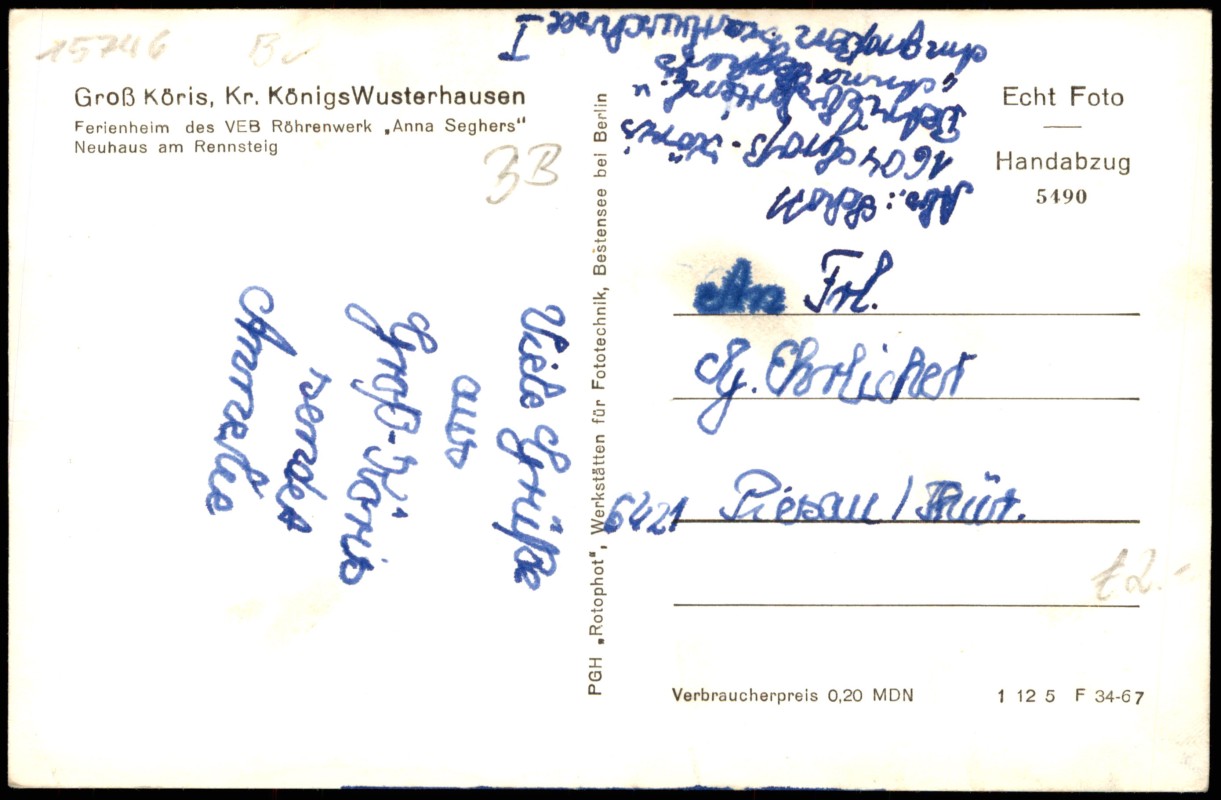 15746
Groß Köris, Kr. KönigsWusterhausen
Ferienheim des VEB Röhrenwerk „Anna Seghers"
Neuhaus am Rennsteig
3B
Viele Grüße
aus
Groß-Köris
sendet
Annelie
PGH „Rotophot", Werkstätten für Fototechnik, Bestensee bei Berlin
Abs.: Scholl
1604 Groß-Köris
"Anna Seghers"
Am großen
Echt Foto
Handabzug
5490
An Frl.
Ehrlicher
6421 Piesau / Thür.
12.-
Verbraucherpreis 0,20 MDN
1 12 5 F 34-67